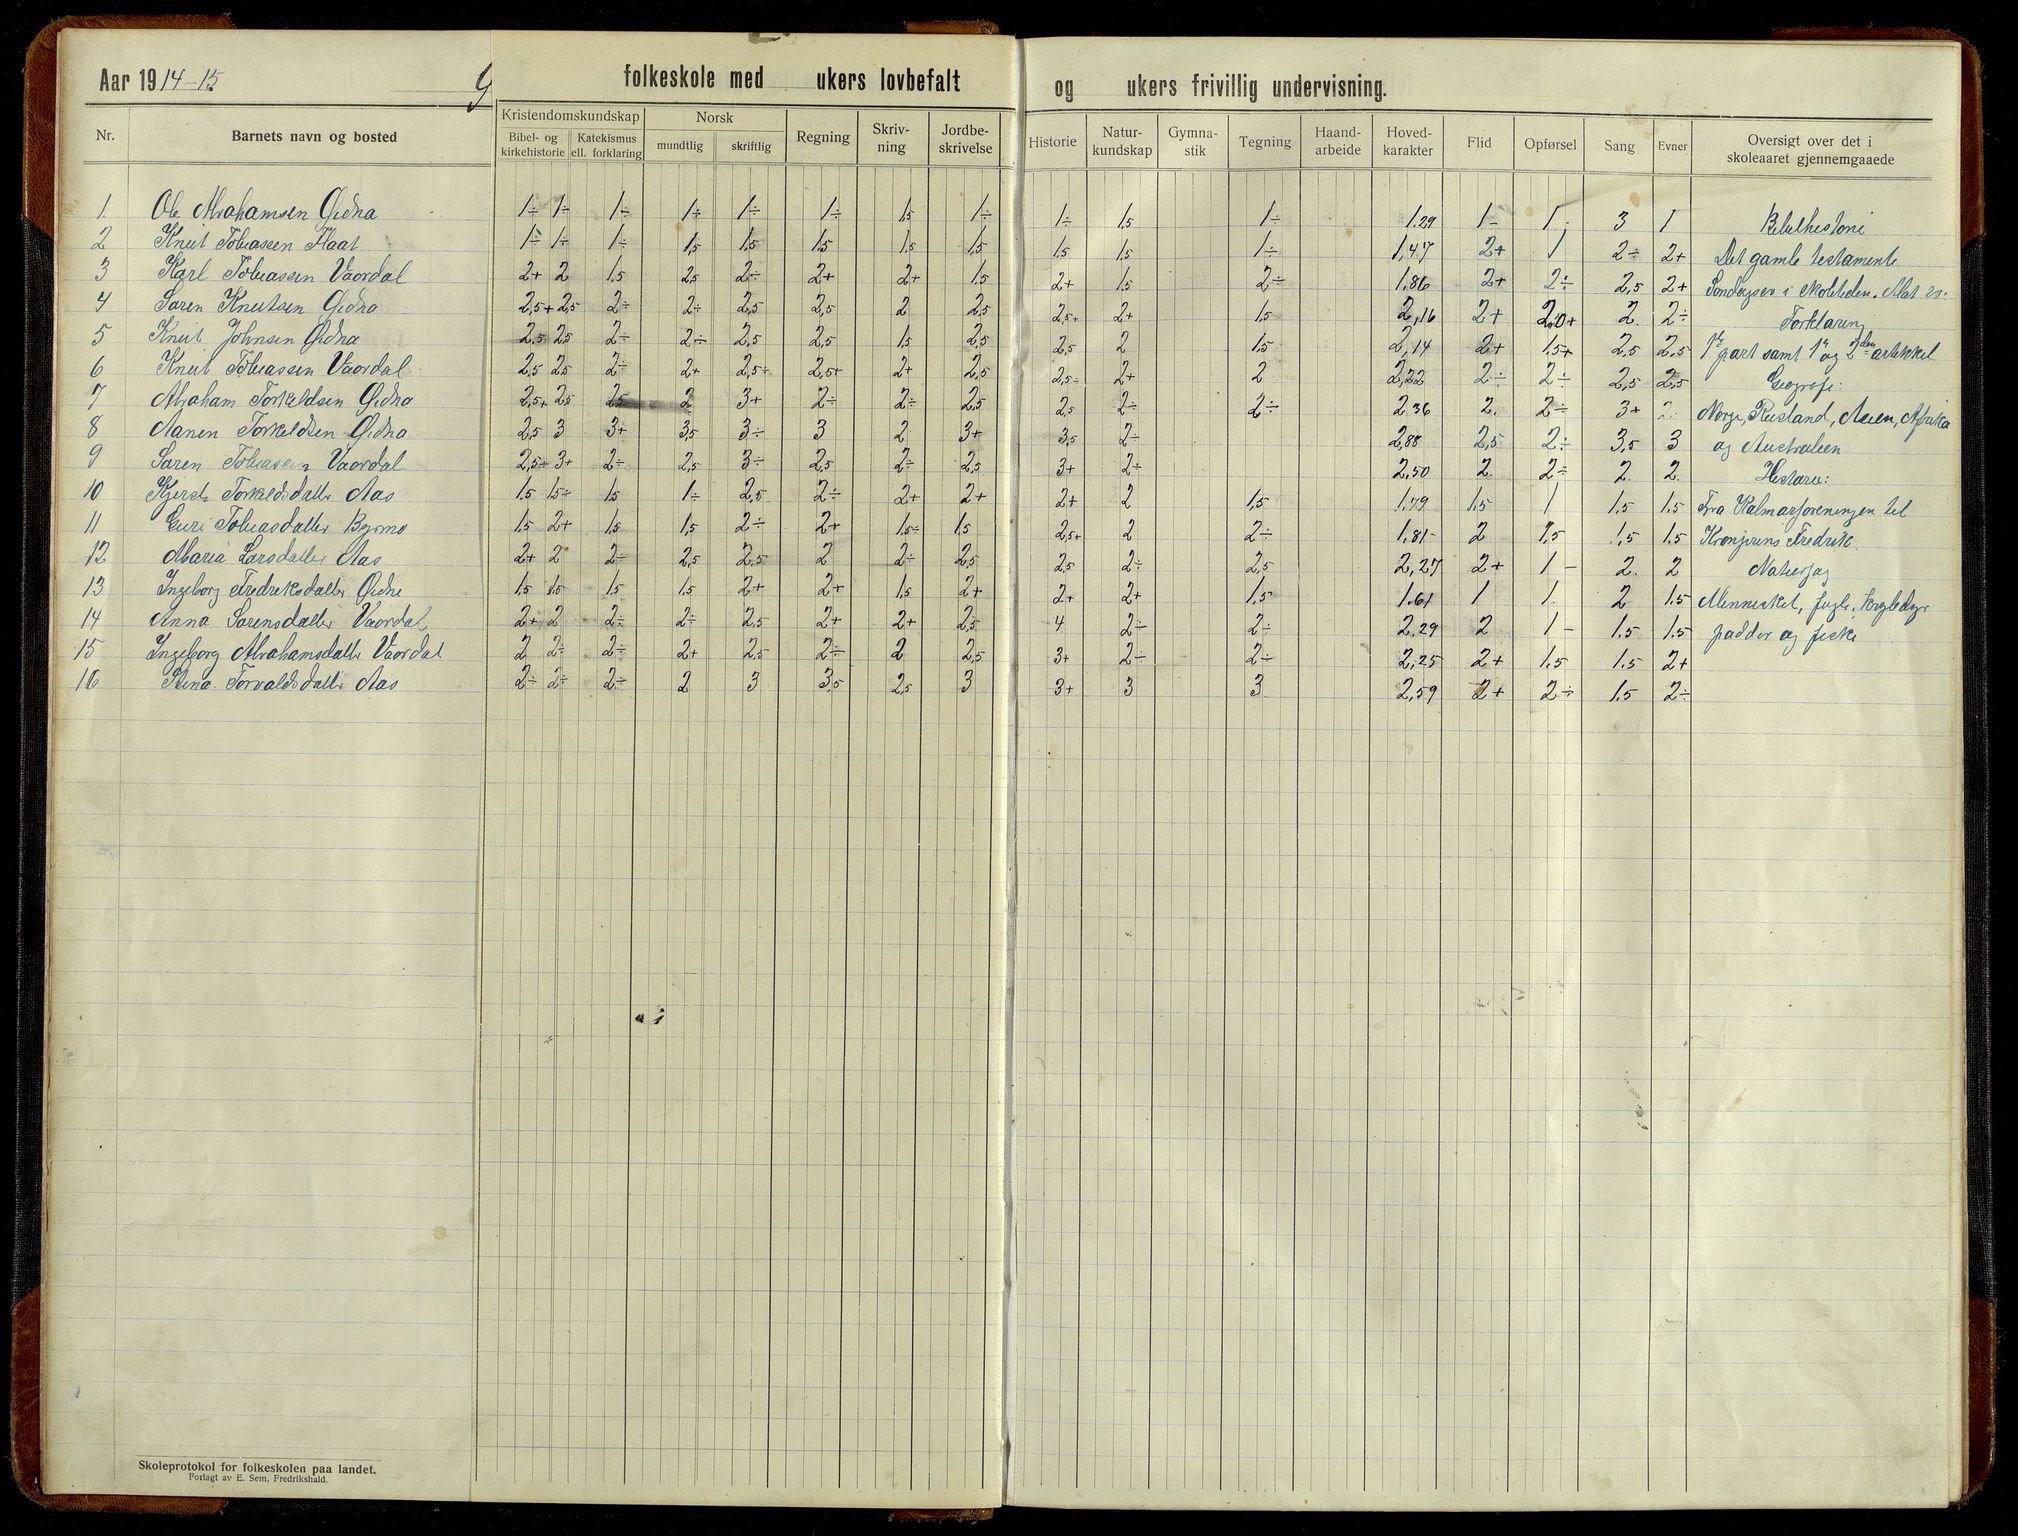 Aar 1914-15 folkeskole med ukers lovbefalt og ukers frivillig undervisning.
Nr. Barnets navn og bosted Kristendomskundskap Bibel- og kirkehistorie Katekismus ell. forklaring Norsk mundtlig skriftlig Regning Skriv-ning Jordbe-skrivelse Historie Natur-kundskap Gymna-stik Tegning Haand-arbeide Hoved-karakter Flid Opførsel Sang Evner Oversigt over det i skoleaaret gjennemgaaede
1. Ole Abrahamsen Øidna 1÷ 1÷ 1÷ 1÷ 1÷ 1÷ 1,5 1÷ 1÷ 1,5 1÷ 1.29 1- 1 3 1 Bibelhistorie
2 Knut Tobiassen Flaat 1÷ 1÷ 1÷ 1,5 1,5 1,5 1,5 1,5 1,5 1,5 1÷ 1,47 2+ 1 2÷ 2+ Det gamle testamente
3 Karl Tobiassen Vaordal 2+ 2 1,5 2,5 2÷ 2+ 2+ 1,5 2+ 1,5 2÷ 1.86 2+ 2÷ 2,5 2+ i
4 Søren Knutsen Øidna 2,5+ 2,5 2÷ 2÷ 2,5 2,5 2 2,5 2,5+ 2+ 1,5 2,16 2+ 2,0+ 2. 2÷ Forklaring
5 Knut Johnsen Øidna 2,5 2,5 2÷ 2÷ 2,5 2,5 1,5 2,5 2,5 2 1,5 2,14 2+ 1,5+ 2,5 2,5 1ste part samt 1ste og 2den artikkel
6 Knut Tobiassen Vaordal 2,5 2,5 2÷ 2+ 2,5÷ 2,5+ 2+ 2,5 2,5÷ 2+ 2 2,22 2÷ 2÷ 2,5 2,5 Geografi:
7 Abraham Torkeldsen Øidna 2,5+ 2,5 2,5 2 3+ 2÷ 2÷ 2,5 2,5 2÷ 2÷ 2.36 2. 2÷ 3+ 2. Norge, Rusland, Asien, Afrika
8 Aanen Torkeldsen Øidna 2,5 3 3+ 3,5 3÷ 3 2 3+ 3,5 2÷ 2,88 2,5 2÷ 3,5 3 og Australien
9 Søren Tobiassen Vaordal 2,5+ 3+ 2÷ 2,5 3÷ 2,5 2÷ 2,5 3+ 2÷ 2.50 2. 2÷ 2. 2. Historie:
10 Kjersti Torkeldsdatter Aas 1,5 1,5÷ 1,5 1÷ 2,5 2÷ 2+ 2+ 2+ 2 1,5 1.79 1.5 1 1.5 1.5 Fra Kalmarforeningen til
11 Guri Tobiasdatter 1,5 2+ 1,5 1,5 2÷ 2+ 1,5÷ 1,5 2,5+ 2 2÷ 1.81- 2 1.5 1,5 1.5 Kronprins Fredrik.
12 Maria Larsdatter Aas 2+ 2 2÷ 2,5 2,5 2 2÷ 2,5 2,5 2÷ 2,5 2,27 2+ 1 - 2. 2 Naturfag
13 Ingeborg Fredriksdatter Øidne 1,5 1,5 1,5 1.5 2+ 2+ 1,5 2+ 2+ 2+ 1,5 1.61 1 1. 2 1.5 Mennesket, fugle, krybdyr
14 Anna Sørensdatter Vaordal 2+ 2 2÷ 2÷ 2,5 2+ 2+ 2,5 4 2÷ 2÷ 2.29 2 1 - 1.5 1.5 padder og fiske
15 Ingeborg Abrahamsdatter Vaordal 2 2÷ 2÷ 2+ 2.5 2÷ 2 2,5 3+ 2÷ 2÷ 2,25 2+ 1.5 1.5 2+
16 Stina Torvaldsdatter Aas 2÷ 2÷ 2÷ 2 3 3,5 2,5 3 3+ 3 3 2,59 2+ 2÷ 1.5 2÷
Skoleprotokol for folkeskolen paa landet.
Forlagt av E. Sem, Fredrikshald.